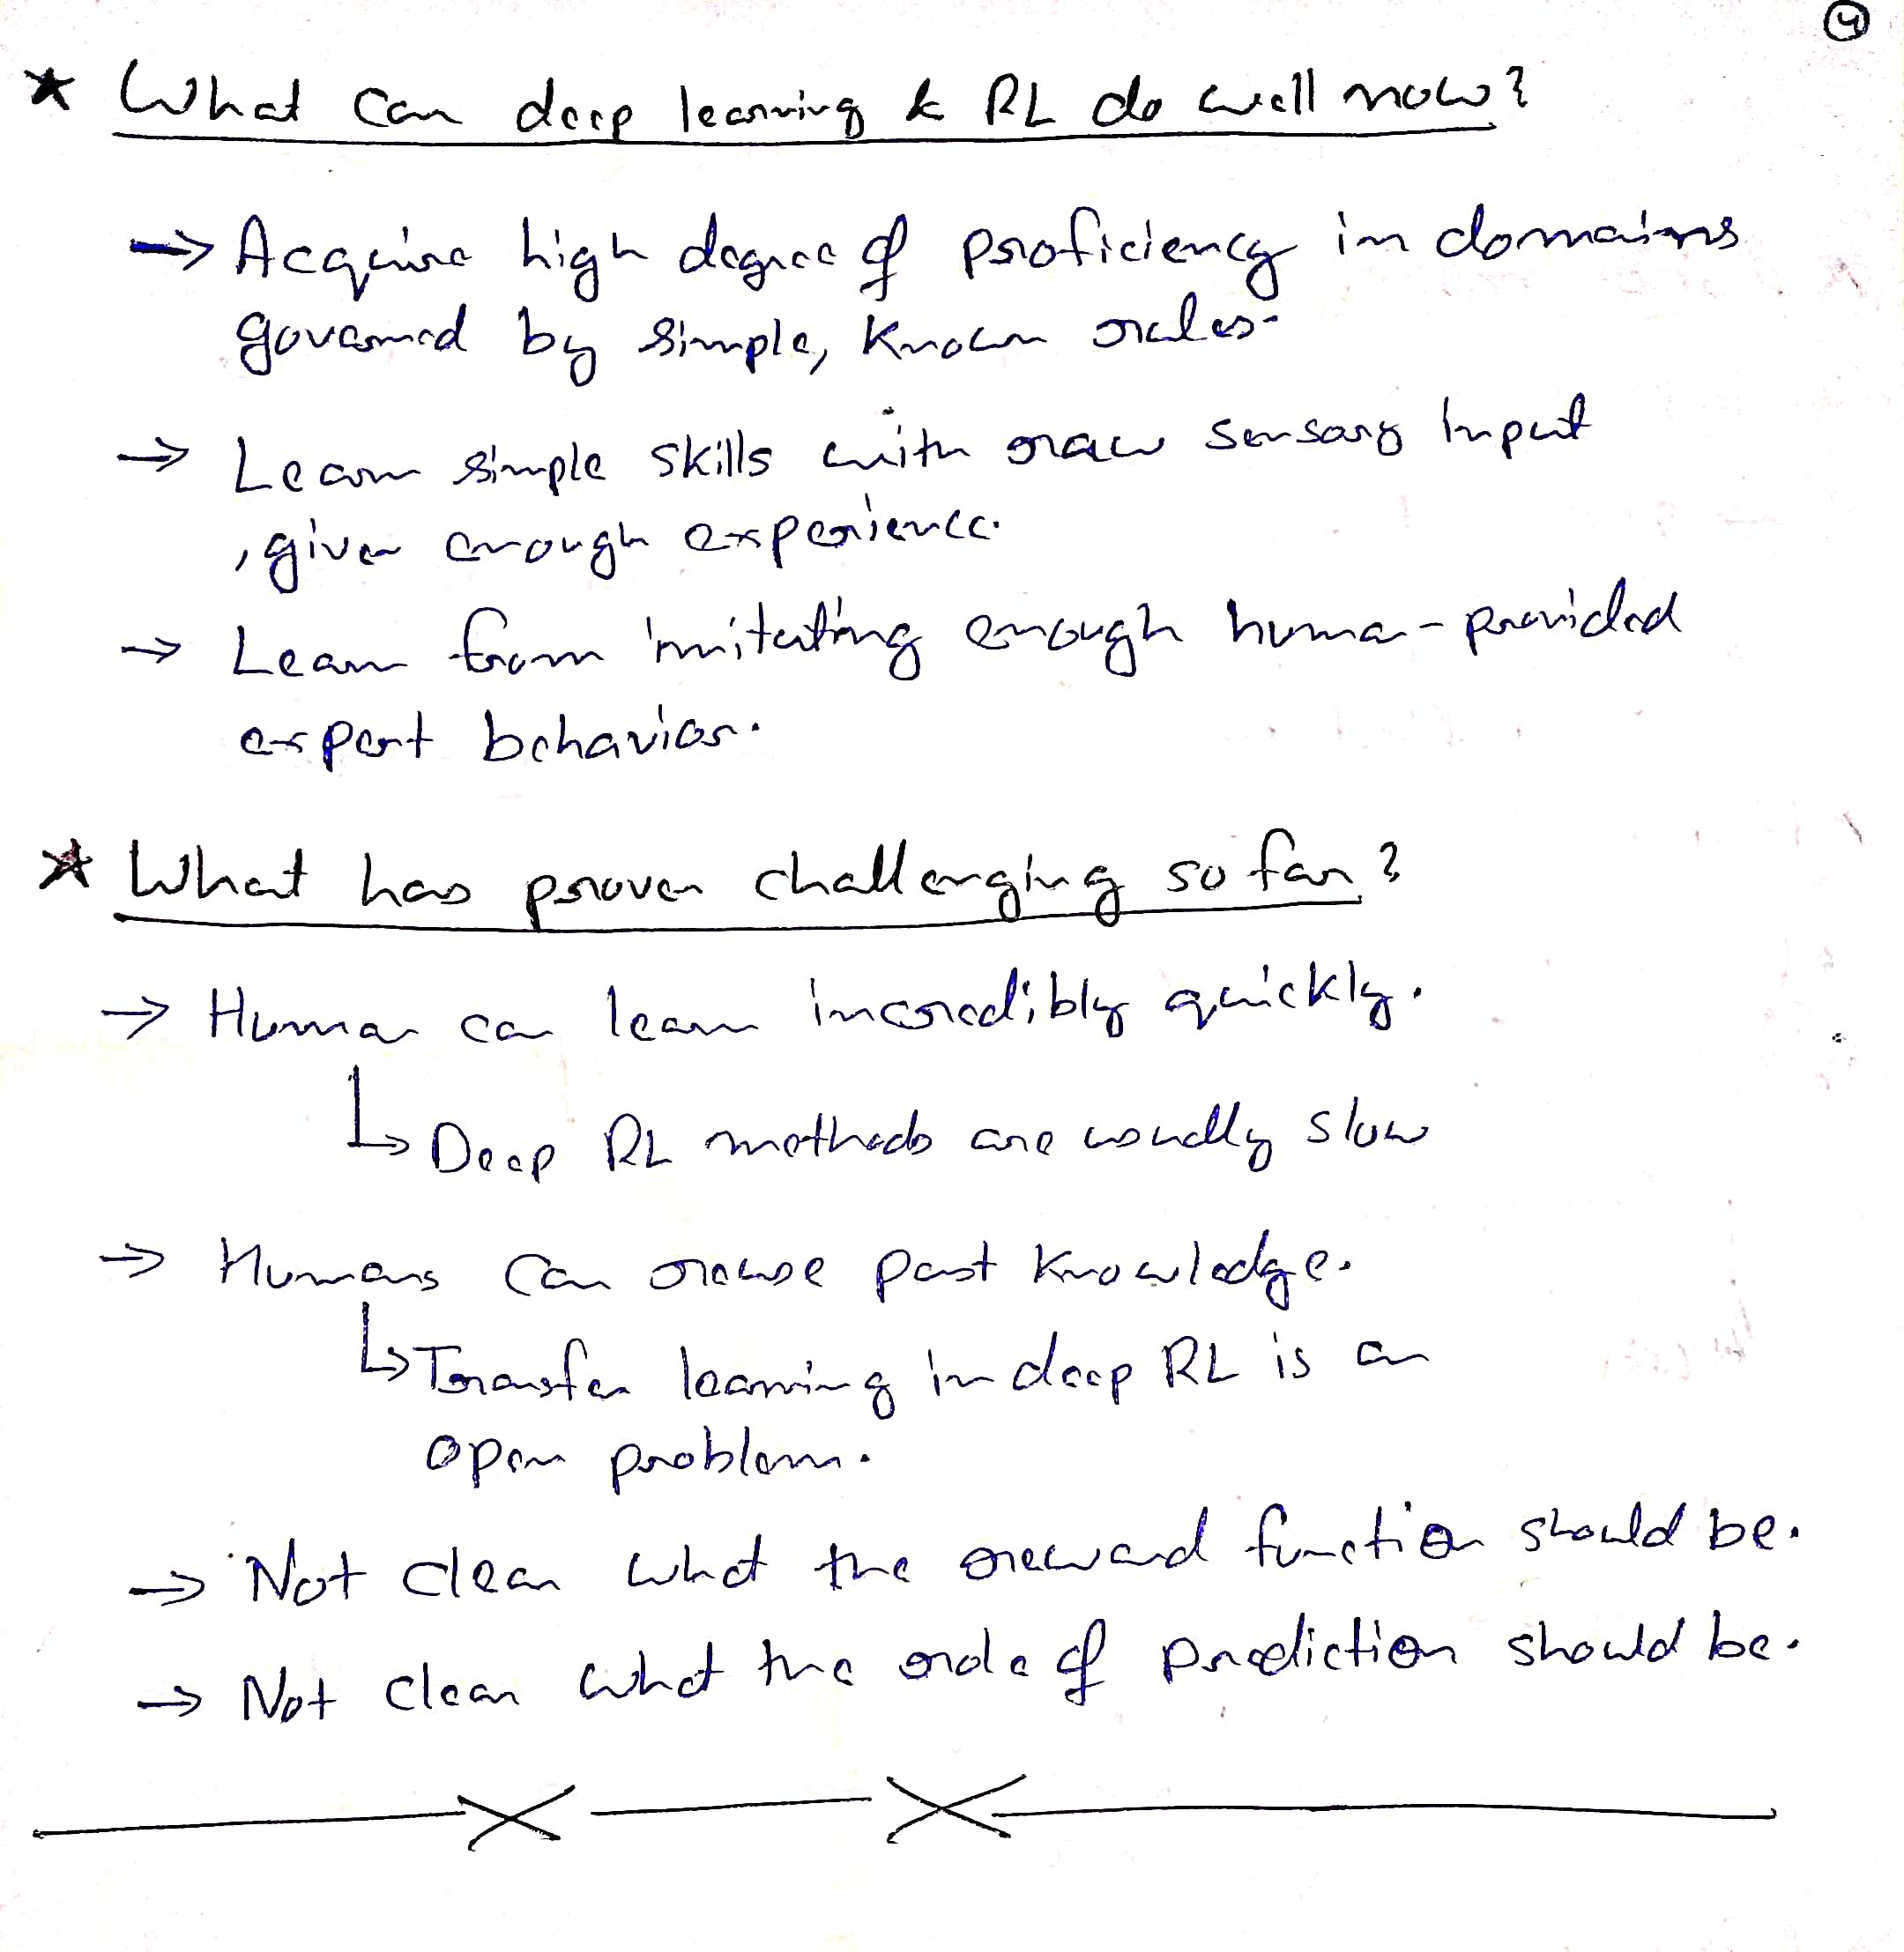 4
* What can deep learning & RL do well now?
→ Acquire high degree of proficiency in domains
governed by simple, known rules.
→ Learn simple skills with raw sensory input
, given enough experience.
→ Learn from imitating enough human-provided
expert behavior.
* What has proven challenging so far?
→ Human can learn incredibly quickly.
↳ Deep RL methods are usually slow
→ Humans can reuse past knowledge.
↳ Transfer learning in deep RL is an
open problem.
→ Not clear what the reward function should be.
→ Not clear what the role of prediction should be.